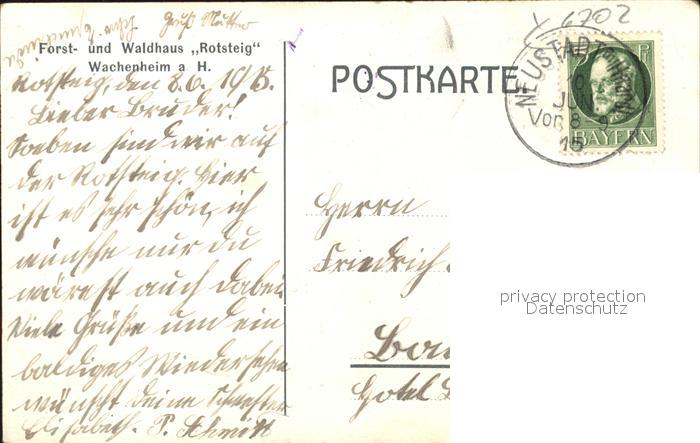 Gruß Mutter
6702
Forst- und Waldhaus „Rotsteig“
Wachenheim a H.
POSTKARTE
NEUSTADT
JUN
Vor 8-9
15
BAYERN
Rotsteig, den 8.6.1915.
Lieber Bruder!
Soeben sind wir auf
der Rotsteig. Hier
ist es sehr schön, ich
wünsche nur du
wärest auch dabei.
Viele Grüße und ein
baldiges Wiedersehen
wünscht deine Schwester
Elisabeth. P. Schmitt
Herrn
Friedrich
Hotel
privacy protection
Datenschutz